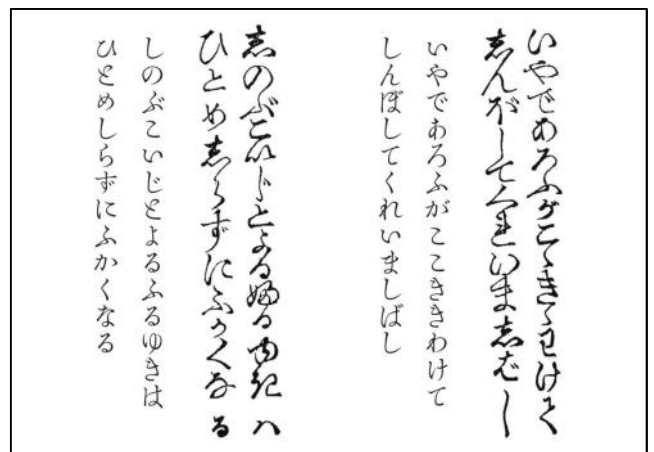 いやであろふがこゝきゝわけて
志んぼしてくれいま志ばし
いやであろふがここききわけて
しんぼしてくれいましばし
志のぶこいぢとよる婦るゆきハ
ひとめ志らずにふかくなる
しのぶこいじとよるふるゆきは
ひとめしらずにふかくなる